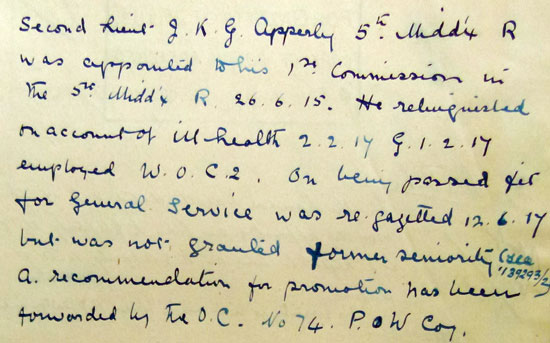 Second Lieut J. K. G. Apperly 5th Middx R
was appointed to his 1st Commission in
the 5th Middx R. 26. 6. 15. He relinquished
on account of ill-health 2. 2. 17 G. 1. 2. 17
employed W. O. C. 2. On being passed fit
for General Service was re-gazetted 12. 6. 17
but was not granted former seniority (see
139293/2)
A. recommendation for promotion has been
forwarded by the O.C. No 74. P. O W Coy.